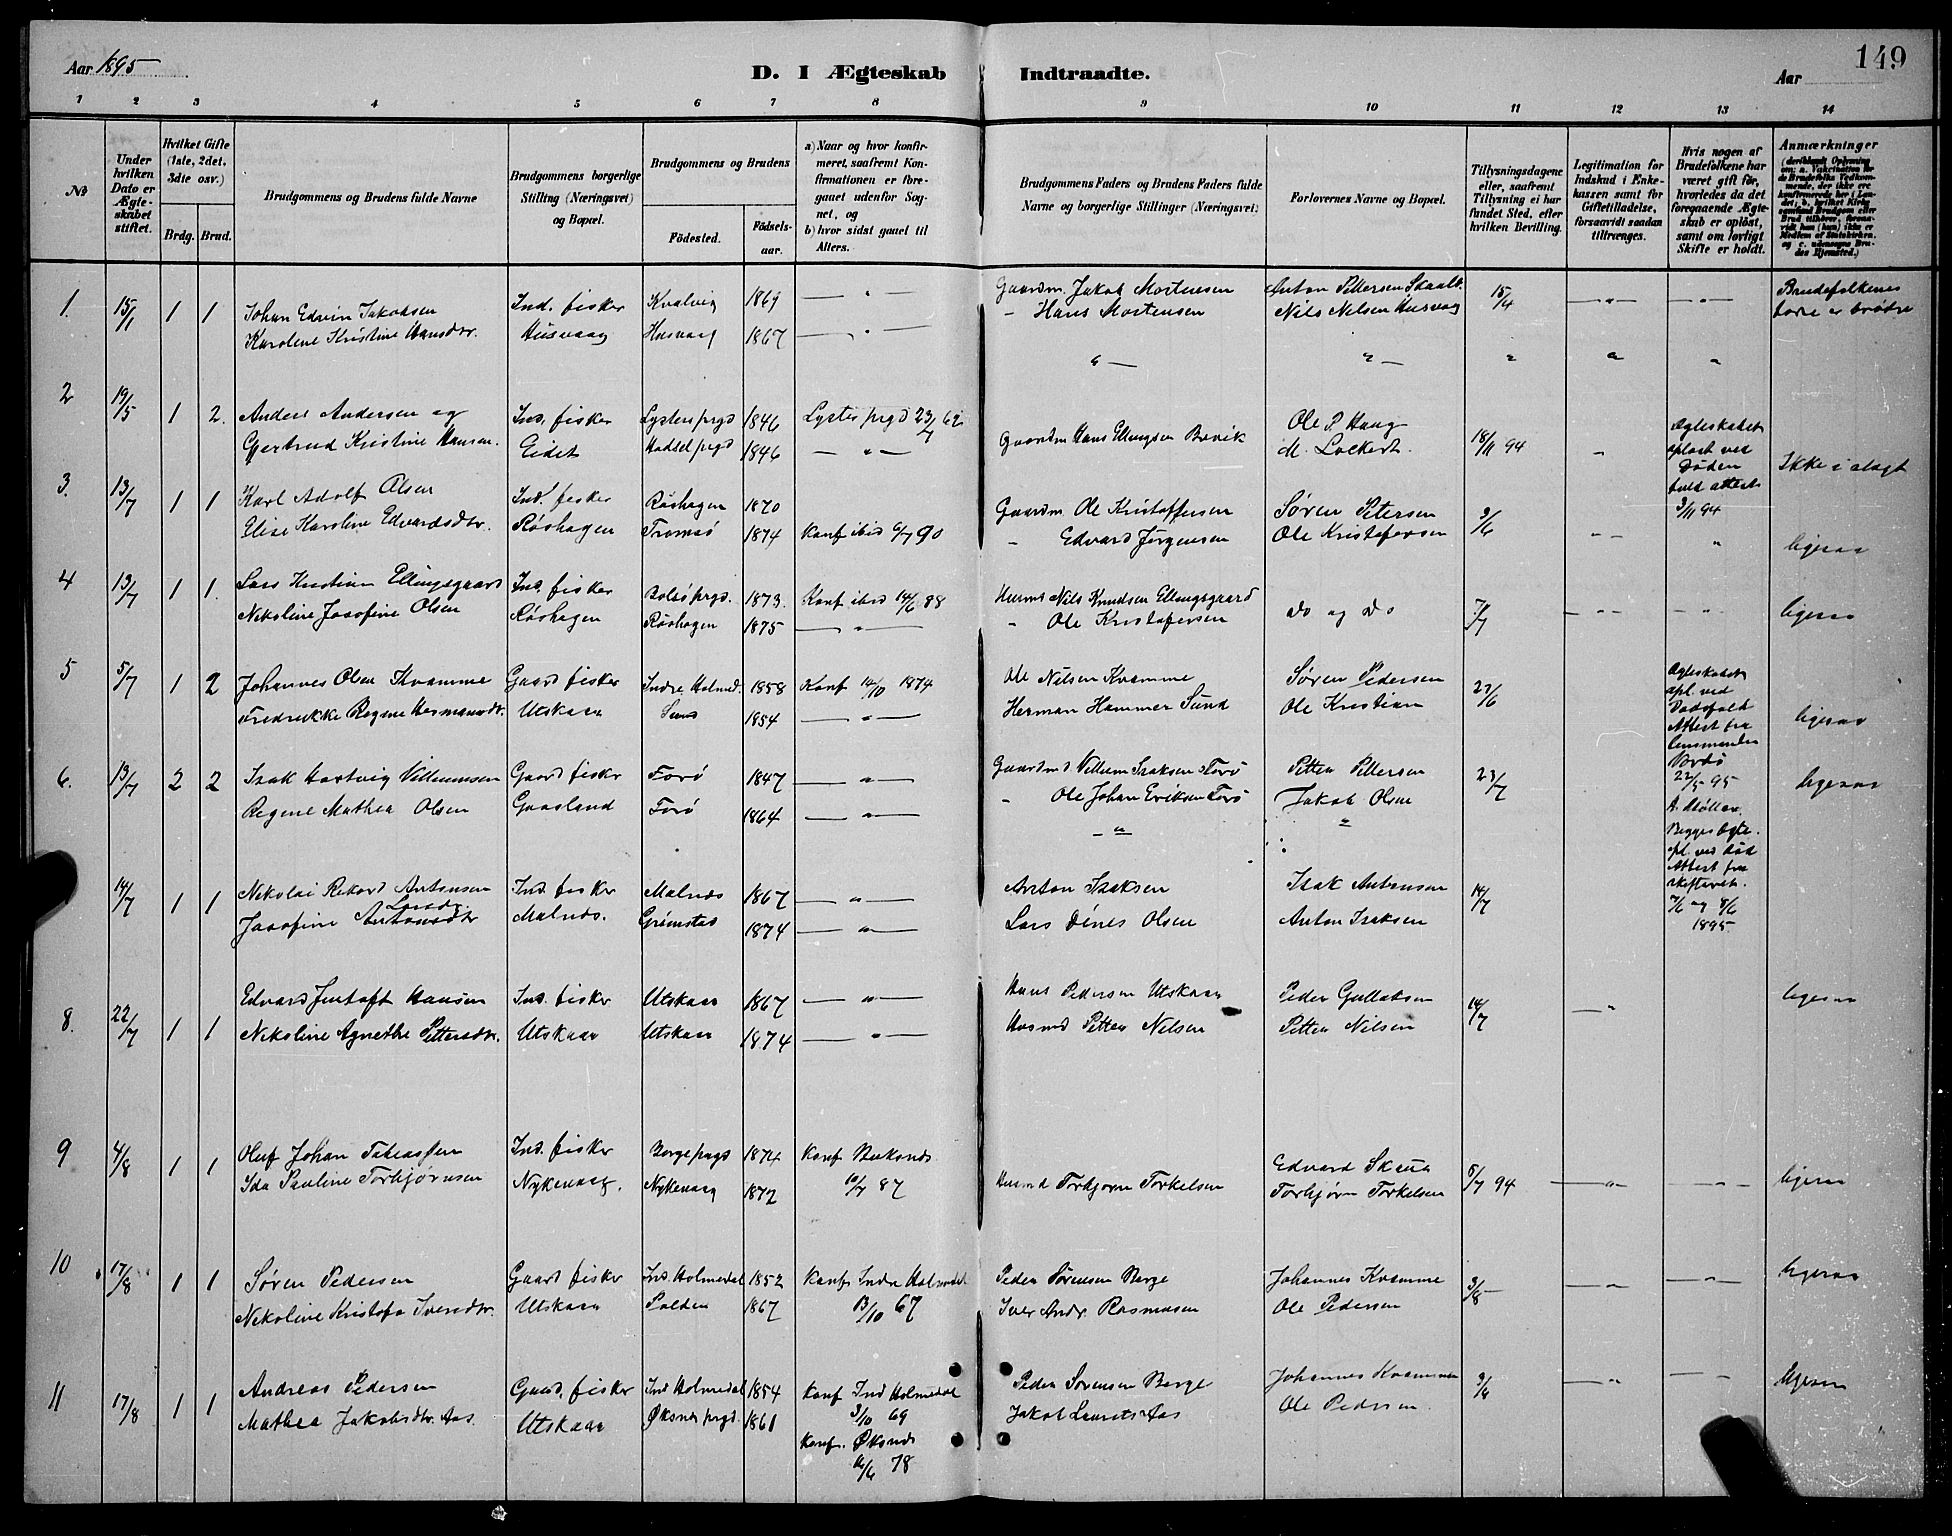 149
Aar 1895
D. I Ægteskab Indtraadte.
Aar
1 2 3 4 5 6 7 8 9 10 11 12 13 14
№
Under hvilken Dato er Ægteskabet stiftet.
Hvilket Gifte (1ste, 2det, 3die osv.)
Brdg. Brud.
Brudgommens og Brudens fulde Navne
Brudgommens borgerlige Stilling (Næringsvei) og Bopæl.
Brudgommens og Brudens
Födested. Födsels-aar.
a) Naar og hvor konfirmeret, saafremt Konfirmationen er foregaaet udenfor Sognet, og
b) hvor sidst gaaet til Alters.
Brudgommens Faders og Brudens Faders fulde Navne og borgerlige Stillinger (Næringsvei)
Forlovernes Navne og Bopæl.
Tillysningsdagene eller, saafremt Tillysning ei har fundet Sted, efter hvilken Bevilling.
Legitimation for Indskud i Enkekassen samt for Giftetilladelse, forsaavidt saadan tiltrænges.
Hvis nogen af Brudefolkene har været gift för, hvorledes da det foregaaende Ægteskab er oplöst, samt om lovligt Skifte er holdt.
Anmærkninger
1. 15/1 1 1 Johan Edvin Jakobsen Ind. fisker Kvalvig 1869 — " — Gaardm. Jakob Mortensen Anton Pettersen Skaalb. 15/4 — " — — " — Brudefolkenes
Karoline Kristine Hansdtr. Husvaag Husvaag 1867 — " — - Hans Mortensen Nils Nelsen Husvaag fædre er brødre
2 19/5 1 2. Anders Andersen og Ind. fisker Lyster prgd 1846 Lyster prgd 23/7 62 Ole P. Haug Ægteskabet
Gjertrud Kristine Hansen. Eidet Hadsel prgd 1846 — " — Gaardm Hans Ellingsen Bovik M. Lockert. 18/11 94 opløst ved Døden
Ikke i slægt
3/11 94
3. 13/7 1 1 Karl Adolf Olsen Ind. fisker Røshagen 1870 Gaardm Ole Kristoffersen Søren Petersen 9/6
Elise Karoline Edvardsdtr. Røshagen Tromsø 1874 Konf ibid 6/7 90 - Edvard Jørgensen Ole Kristofersen ligesaa
4 13/7 1 1. Lars Kristian Ellingsgaard Ind. fisker Bolsø prgd. 1873. Konf ibid 14/6 88 Husmd Nils Knudsen Ellingsgaard do og do 7/7 ligesaa
Nikoline Josefine Olsen Røshagen Røshagen 1875 — " — - Ole Kristofersen
5 5/7 1 2 Johannes Olsen Kvamme Gaard fisker Indre Holmed. 1858 Konf 12/10 1874 Ole Nilsen Kvamme Søren Pedersen 23/6 Ægteskabet
Fredrikke Regine Hermansdtr. Utskaar Sund 1854 — " — Herman Hammer Sund Ole Kristian opl. ved Dødsfald Attest fra lensmanden Bodø 22/5 95
ligesaa
6. 13/7 2 2 Isak Hartvig Villumsen Gaard fisker Forø 1847 — " — Gaardmd Villum Isaksen Forø Petter Pettersen 23/7 ligesaa
Regine Mathea Olsen Gaasland Forø 1864 — " — - Ole Johan Eriksen Forø Jakob Olsen
Begges Ægte. opl. ved død Attest fra skifteretn. 7/6 og 8/6 1895.
14/7 1 1 Nikolai Rikard Antonsen Ind. fisker Malnes 1867 — " — Anton Isaksen Isak Antonsen 14/7
Josefine Antonsdtr Larsdr. Malnes. Grimstad 1874 — " — Lars Dines Olsen Anton Isaksen
8. 22/7 1 1 Edvard Jentoft Hansen Ind. fisker Utskaar 1867 — " — Hans Pedersen Utskaar Peder Gullaksen 14/7 — " ligesaa
Nikoline Agnethe Pettersdtr. Utskaar Utskaar 1874 — " — Husmd Petter Nilsen Petter Nilsen
9 4/8 1 1 Oluf Johan Tobiassen Ind. fisker Borge prgd 1874 Konf Buksnes Edvard Skaug
Ida Pauline Torbjørnsen Nykvaag. Nykvaag 1872 10/7 87 Husmd Torbjørn Torkelsen Torbjørn Torkelsen 5/7 94 — " — — " — ligesaa
10 17/8 1 1 Søren Pedersen Gaard fisker Ind. Holmedal 1852 Konf. Indre Holmedal Peder Sørensen Berge Johannes Kvamme 3/8 — " — — " — ligesaa
Nikoline Kristofa Iversdtr. Utskaar Solden 1867 13/10 67 Iver Andr. Rasmusen Ole Pedersen
11 17/8 1 1 Andreas Pedersen Gaard. fisker Ind Holmedal 1854 Konf Ind Holmedal Peder Sørensen Berge Johannes Kvamme 3/8 — " — — " — ligesaa
Mathea Jakobsdtr. Aas. Utskaar Øksnes prgd. 1861 3/10 69 Jakob Laurits Aas Ole Pedersen.
Konf. Øksnes
16/6 78